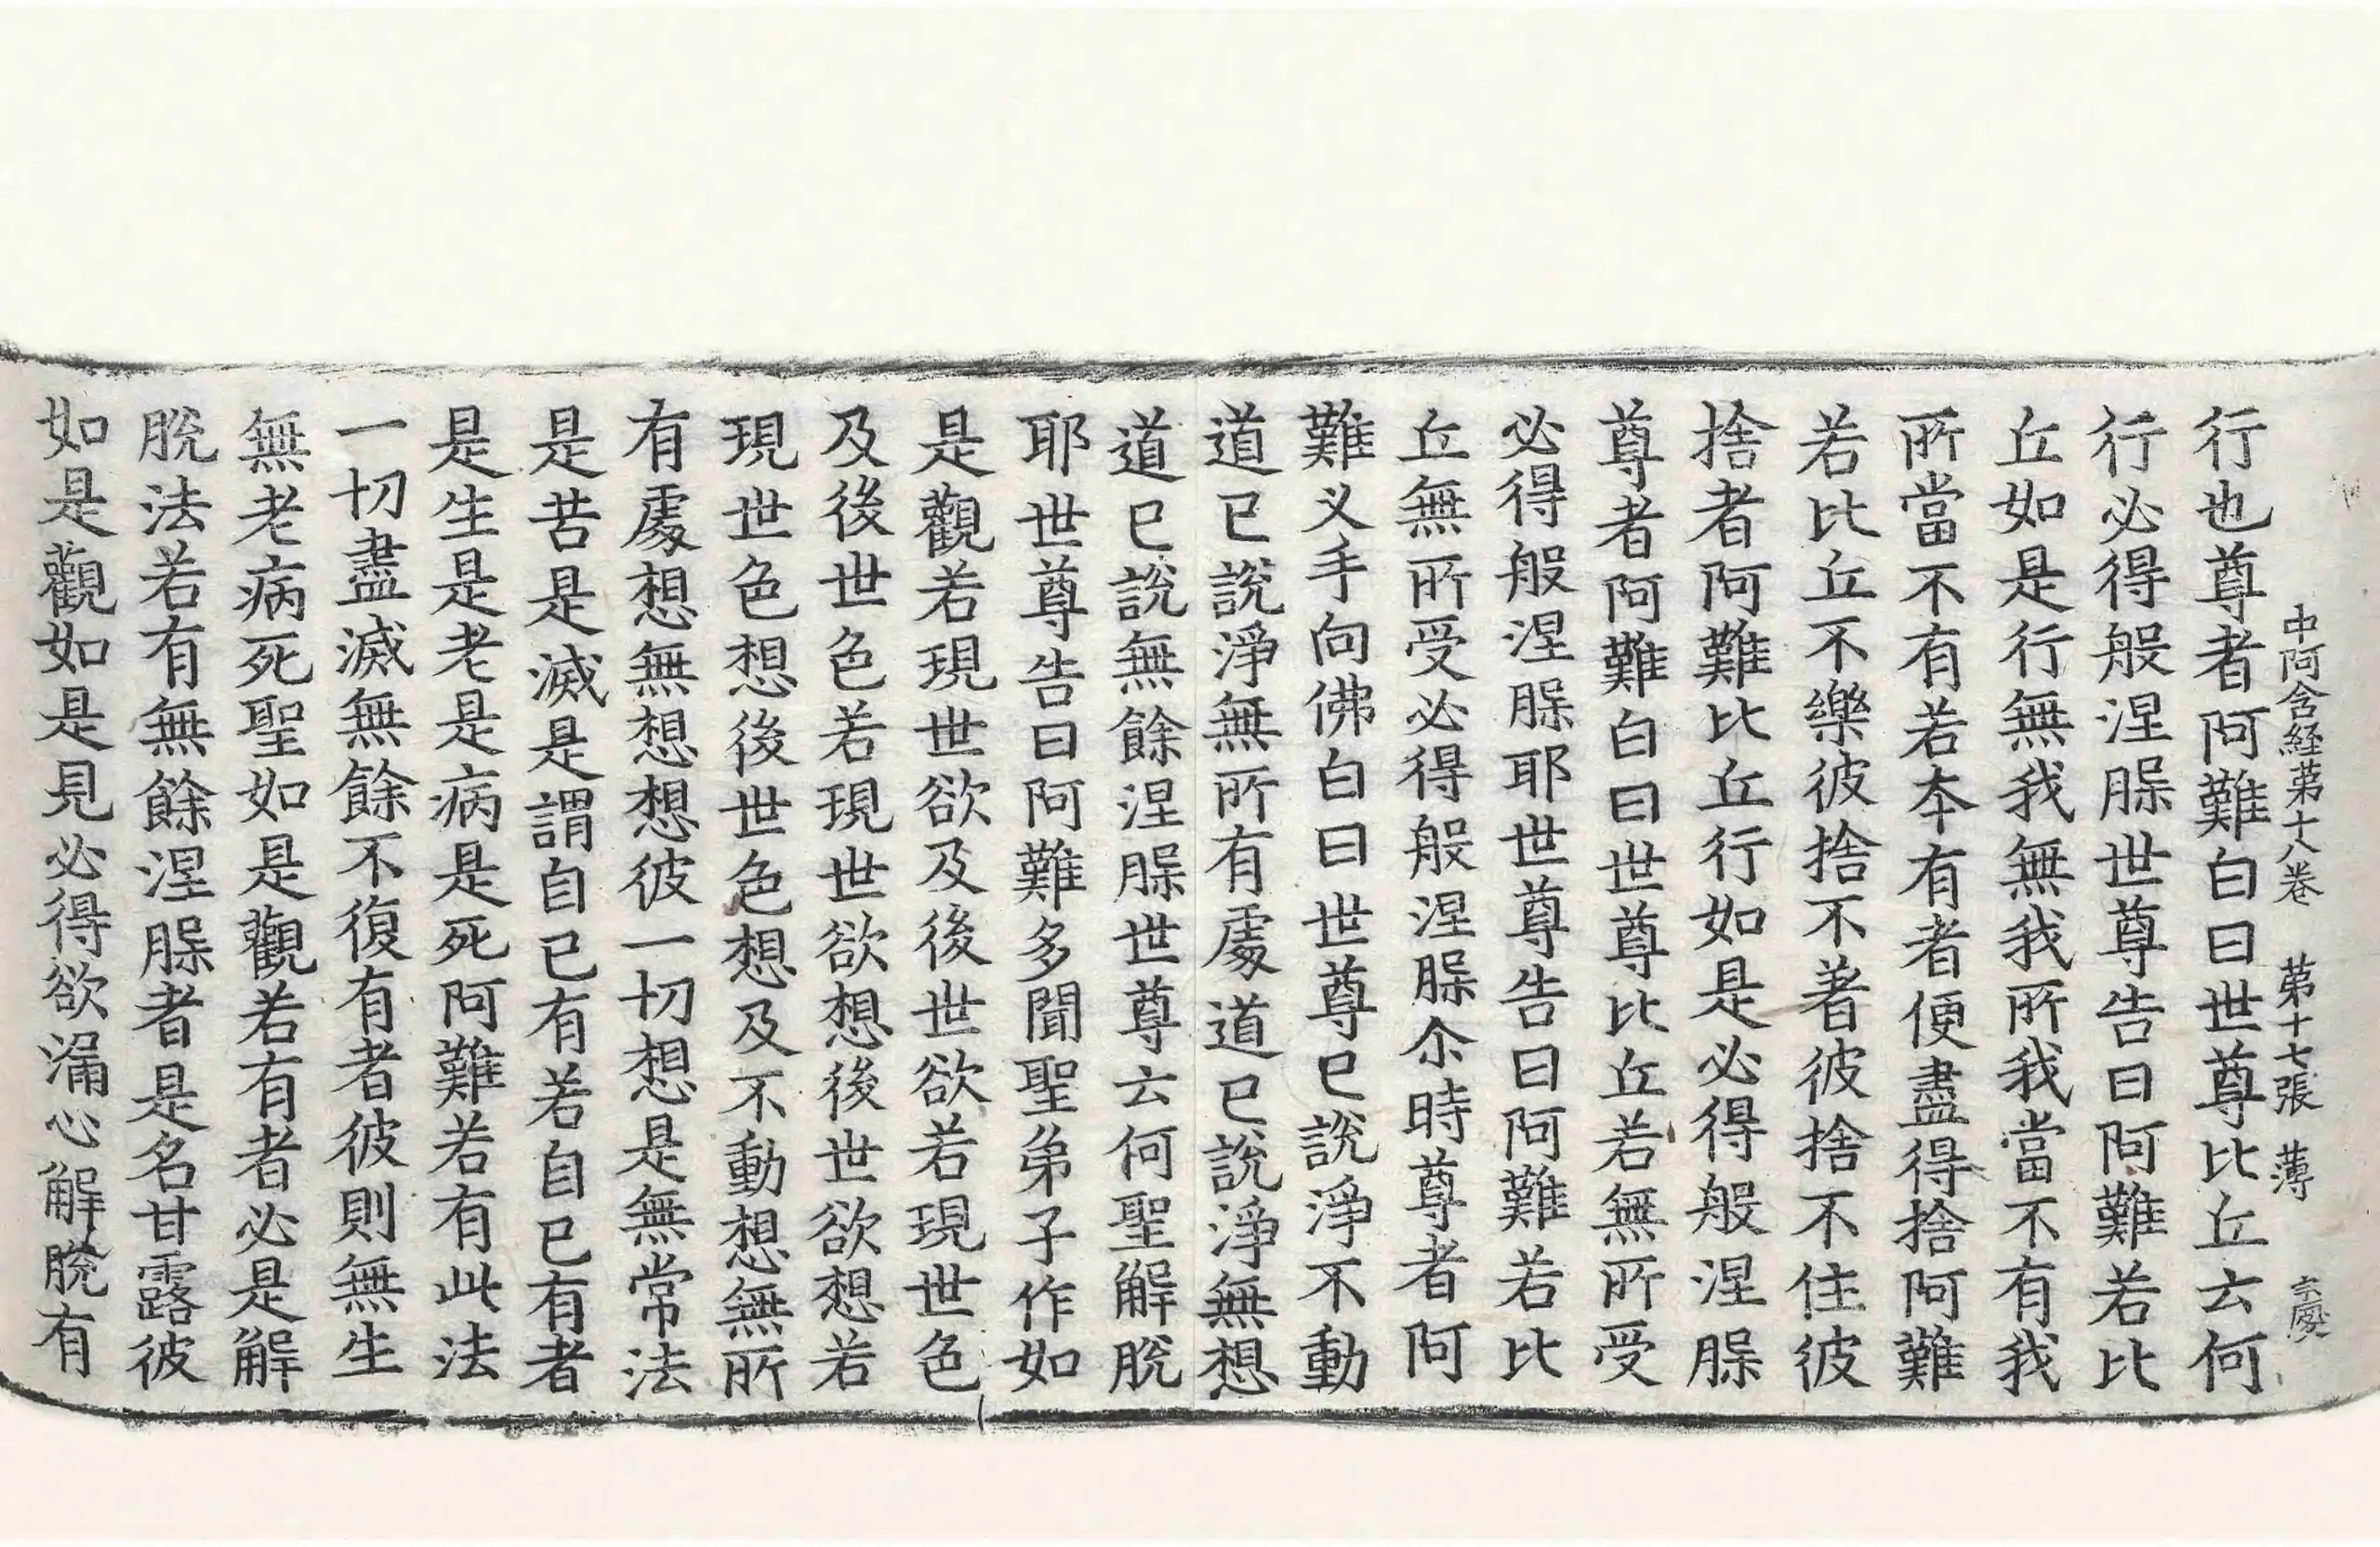 中阿含経苐十八卷　苐十七張　薄
行也尊者阿難白曰世尊比丘云何
行必得般涅㬽世尊告曰阿難若比
丘如是行無我無我所我當不有我
所當不有若夲有者便盡得捨阿難
若比丘不樂彼捨不著彼捨不住彼
捨者阿難比丘行如是必得般涅㬽
尊者阿難白曰世尊比丘若無所受
必得般涅㬽耶世尊告曰阿難若比
丘無所受必得般涅㬽尒時尊者阿
難叉手向佛白曰世尊已說淨不動
道已說淨無所有處道已說淨無想
道已說無餘涅㬽世尊云何聖解脫
耶世尊告曰阿難多聞聖弟子作如
是觀若現世欲及後世欲若現世色
及後世色若現世欲想後世欲想若
現世色想後世色想及不動想無所
有處想無想想彼一切想是無常法
是苦是滅是謂自已有若自已有者
是生是老是病是死阿難若有此法
一切盡滅無餘不復有者彼則無生
無老病死聖如是觀若有者必是解
脫法若有無餘涅㬽者是名甘露彼
如是觀如是見必得欲漏心解脫有